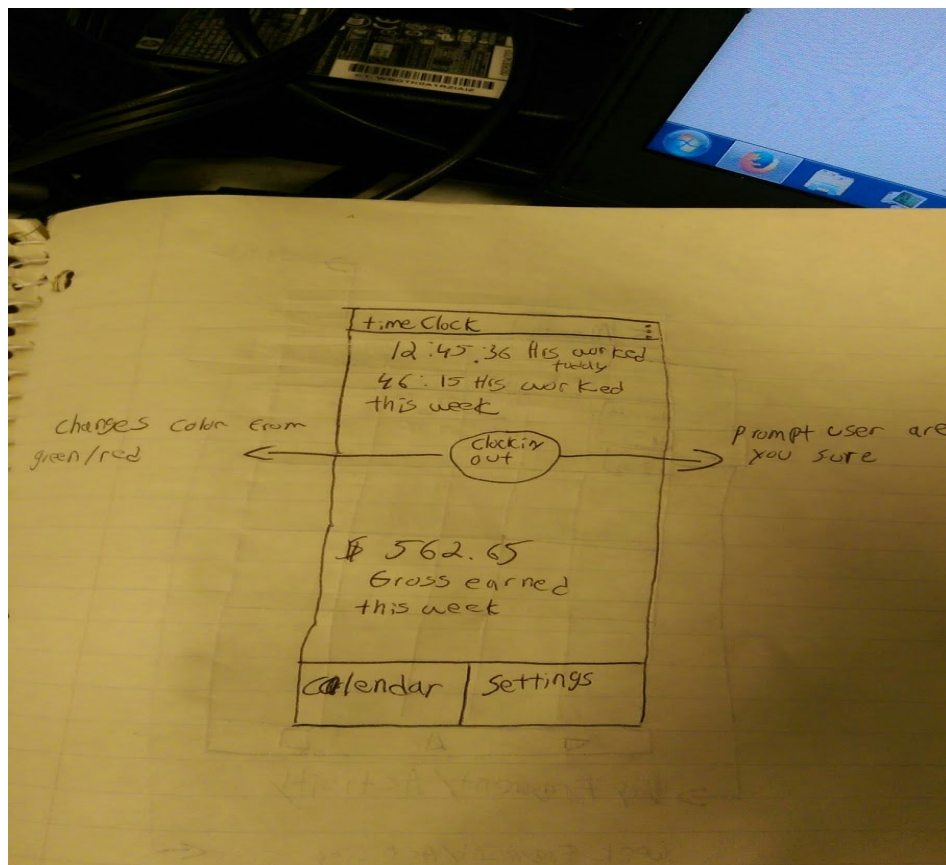 time Clock
12:45:36 Hrs worked
today
46:15 Hrs worked
this week
changes color from
green/red
Clockin/
out
Prompt user are
you sure
$ 562.65
Gross earned
this week
Calendar
Settings